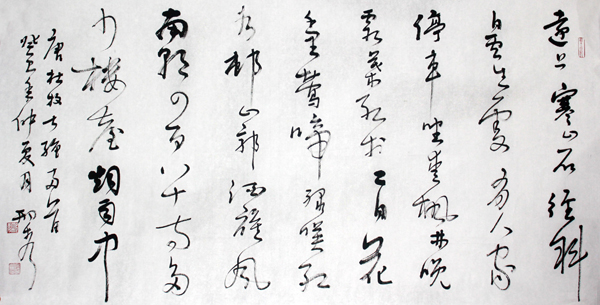 遠上寒山石徑斜
白雲生處有人家
停車坐愛楓林晚
霜葉紅於二月花
千里鶯啼綠暎紅
水邨山郭酒旗風
南朝四百八十寺多
少樓臺烟雨中
唐杜牧七絕兩首
癸巳年仲夏月